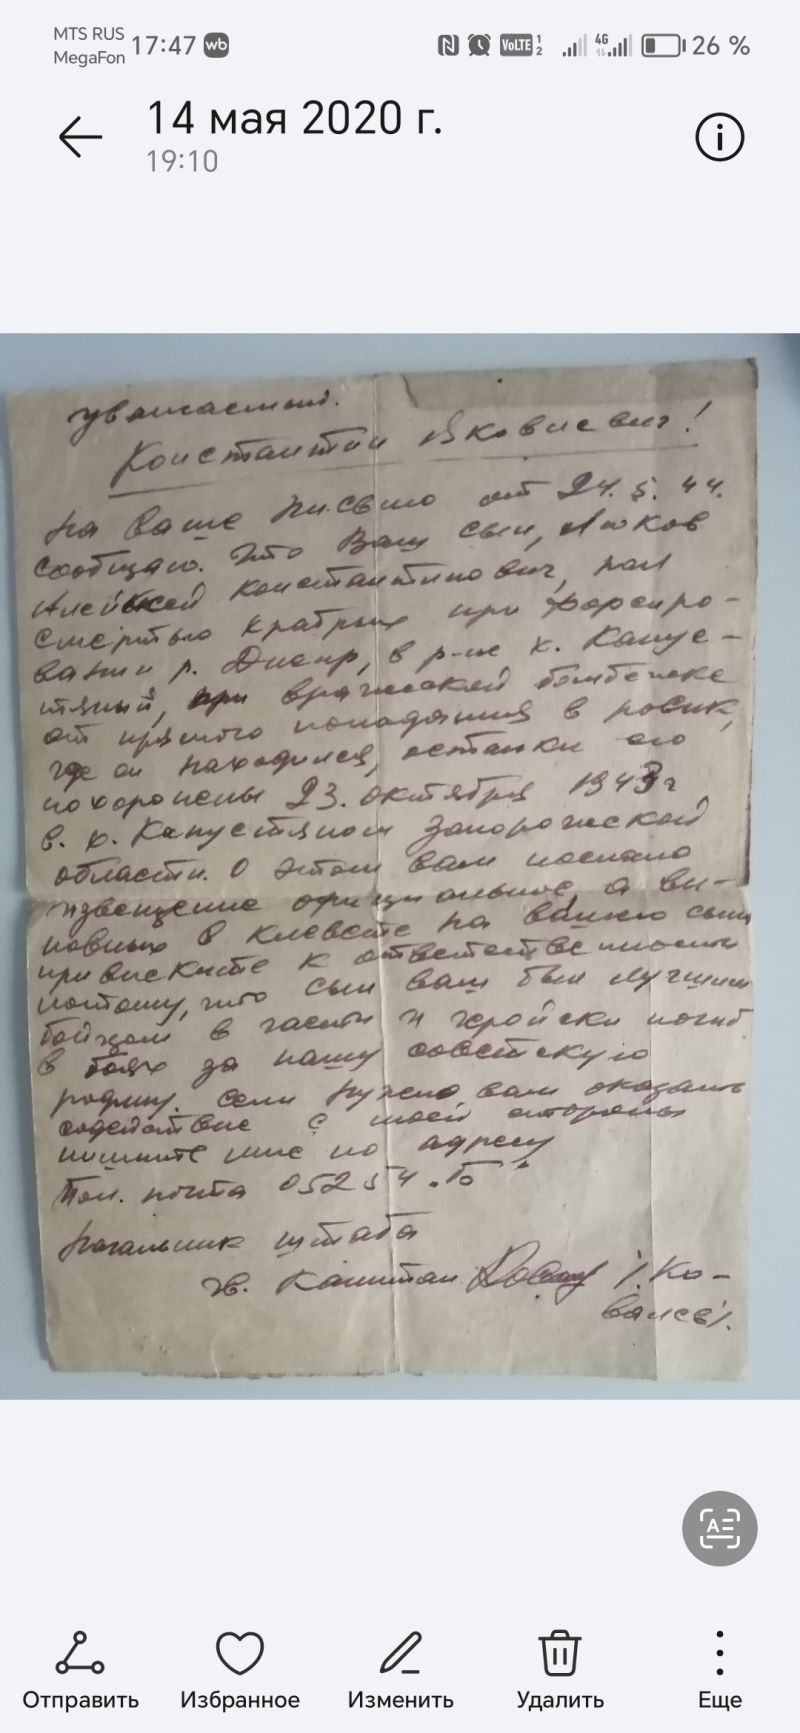 MTS RUS
MegaFon
17:47
wb
VoLTE 1 2
4G
26 %
14 мая 2020 г.
19:10
уважаемый.
Константин Яковлевич!
На ваше письмо от 24.5.44.
сообщаю. Что Ваш сын, Люков
Алексей Константинович, пал
смертью храбрых при форсиро-
вании р. Днепр, в р-не х. Капус-
тяный, при вражеской бомбежке
от прямого попадания в ровик,
где он находился, останки его
похоронены 23. октября 1943 г
в. х. Капустяном Запорожской
области. О этом вам послано
извещение официальное, а ви-
новных в клевете на вашего сына
привлеките к ответственности
потому, что сын ваш был лучшим
бойцом в части и геройски погиб
в боях за нашу советскую
родину. если нужно вам оказать
содействие с моей стороны
пишите мне по адресу
Пол. почта 05254 "Б"
Начальник штаба
гв. Капитан /. Ко-
валев/.
A
Отправить
Избранное
Изменить
Удалить
Еще